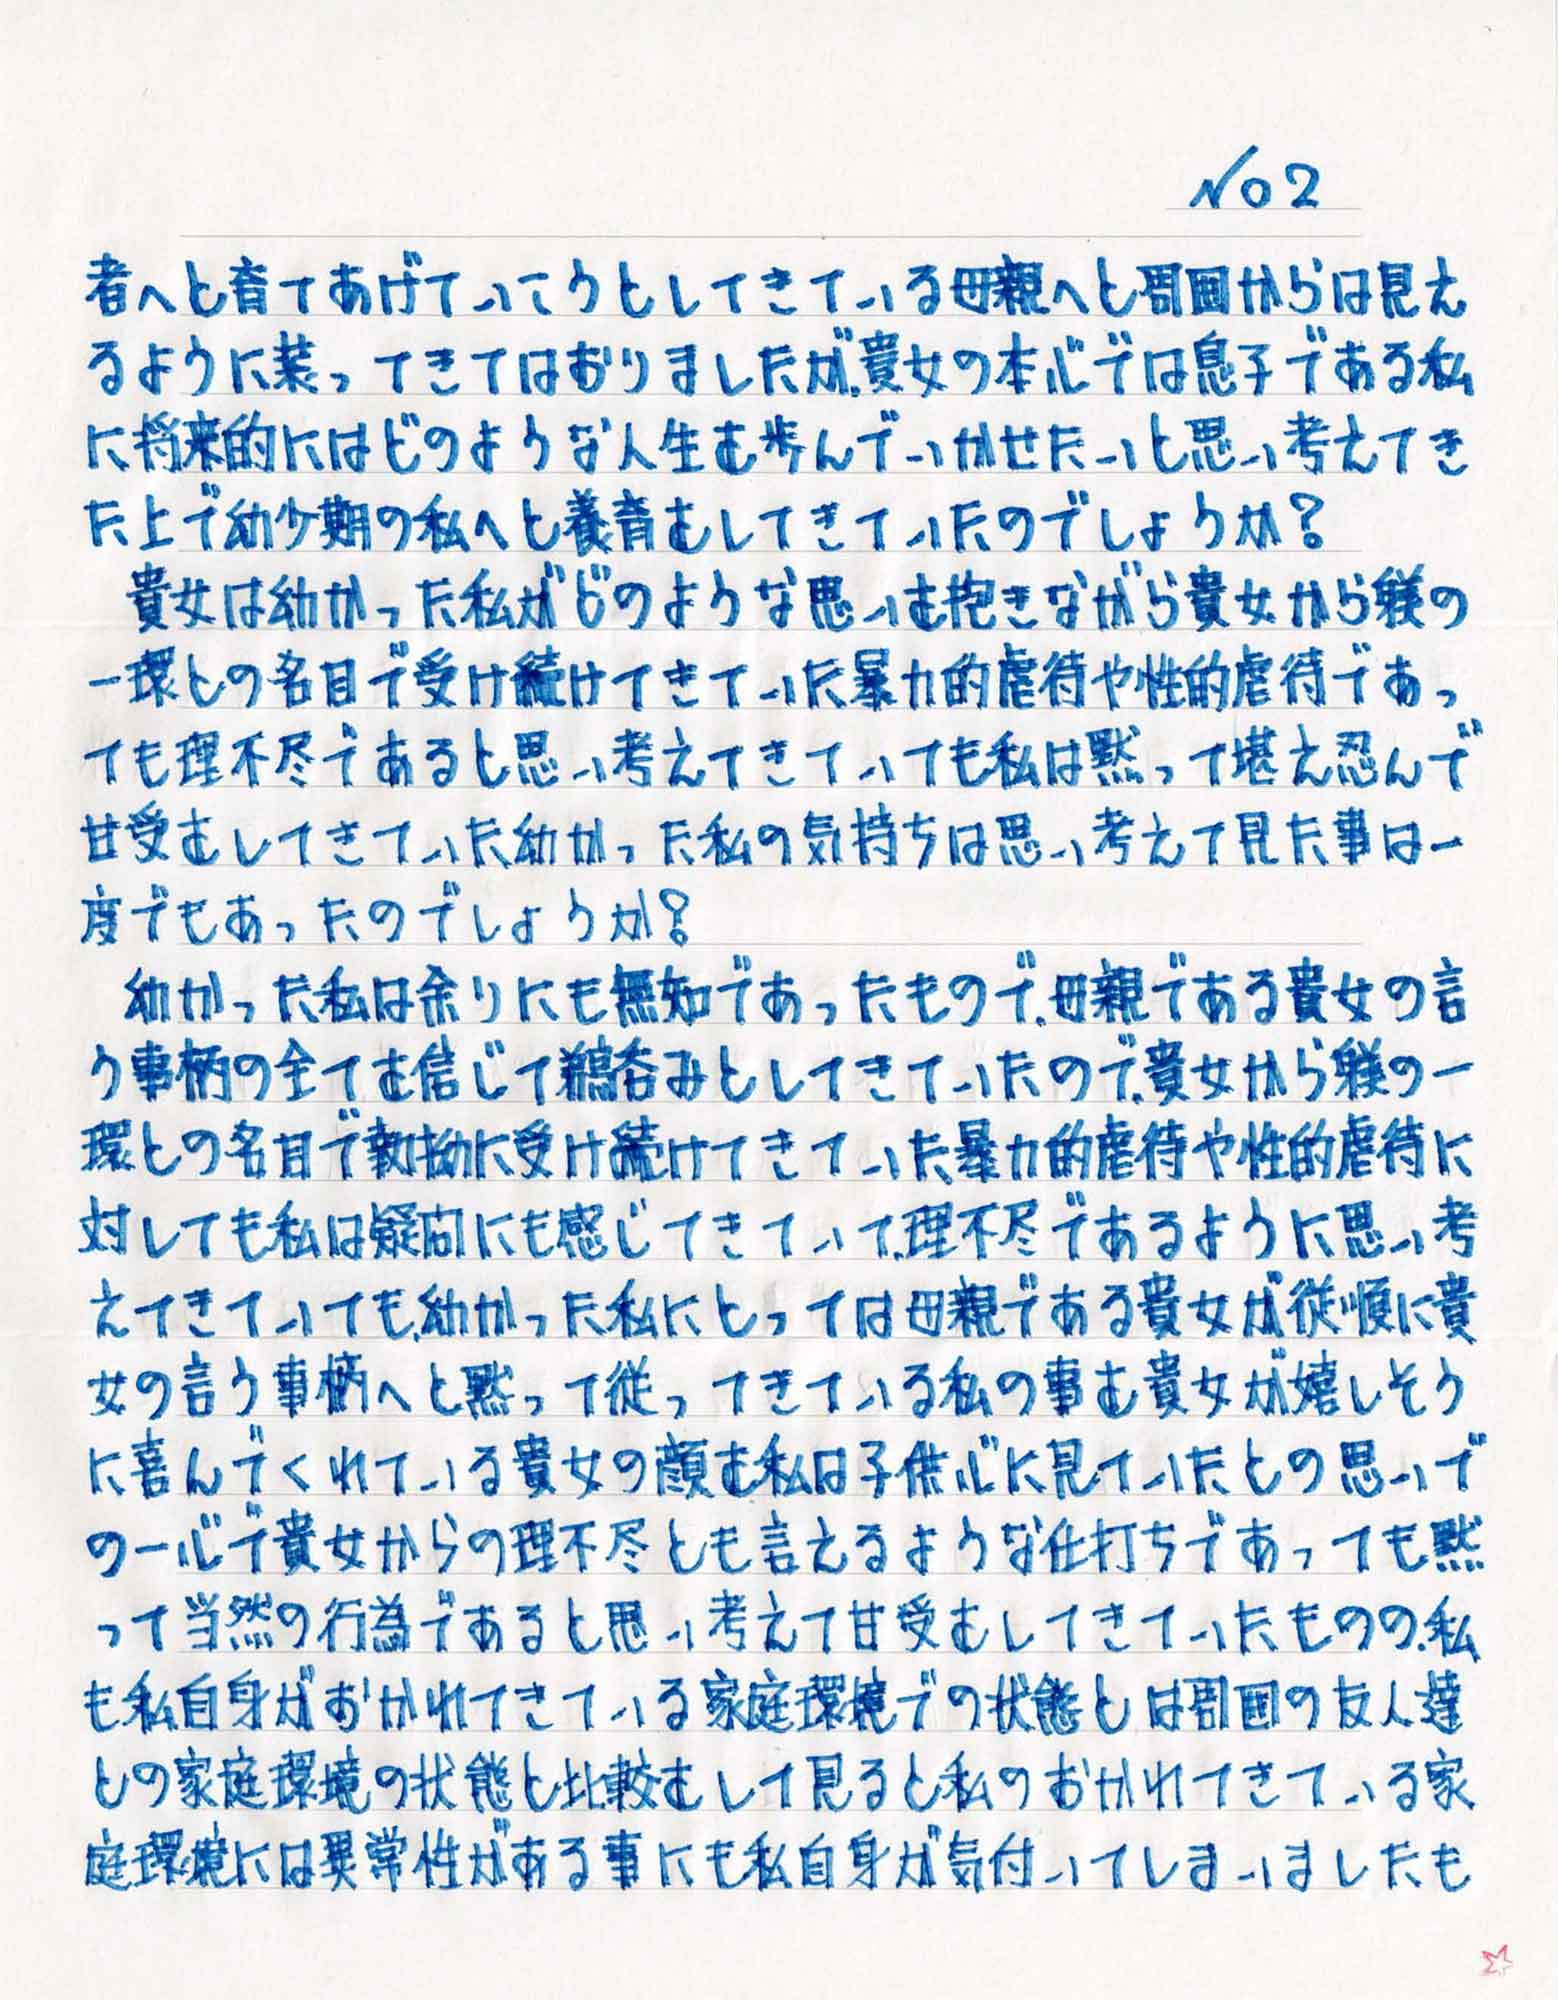 No2
者へと育てあげていこうとしてきている母親へと周囲からは見え
るように装ってきてはおりましたが、貴女の本心では息子である私
に将来的にはどのような人生を歩んでいかせたいと思い考えてき
た上で幼少期の私へと養育をしてきていたのでしょうか?
貴女は幼かった私がどのような思いを抱きながら貴女から躾の
一環との名目で受け続けてきていた暴力的虐待や性的虐待であっ
ても理不尽であると思い考えてきていても私は黙って堪え忍んで
甘受をしてきていた幼かった私の気持ちは思い考えて見た事は一
度でもあったのでしょうか?
幼かった私は余りにも無知であったもので、母親である貴女の言
う事柄の全てを信じて鵜呑みとしてきていたので、貴女から躾の一
環との名目で執拗に受け続けてきていた暴力的虐待や性的虐待に
対しても私は疑問にも感じてきていて、理不尽であるように思い考
えてきていても、幼かった私にとっては母親である貴女が従順に貴
女の言う事柄へと黙って従ってきている私の事を貴女が嬉しそう
に喜んでくれている貴女の顔を私は子供心に見ていたとの思いで
の一心で貴女からの理不尽とも言えるような仕打ちであっても黙
って当然の行為であると思い考えて甘受をしてきていたものの、私
も私自身がおかれてきている家庭環境での状態とは周囲の友人達
との家庭環境の状態と比較をして見ると私のおかれてきている家
庭環境には異常性がある事にも私自身が気付いてしまいましたも